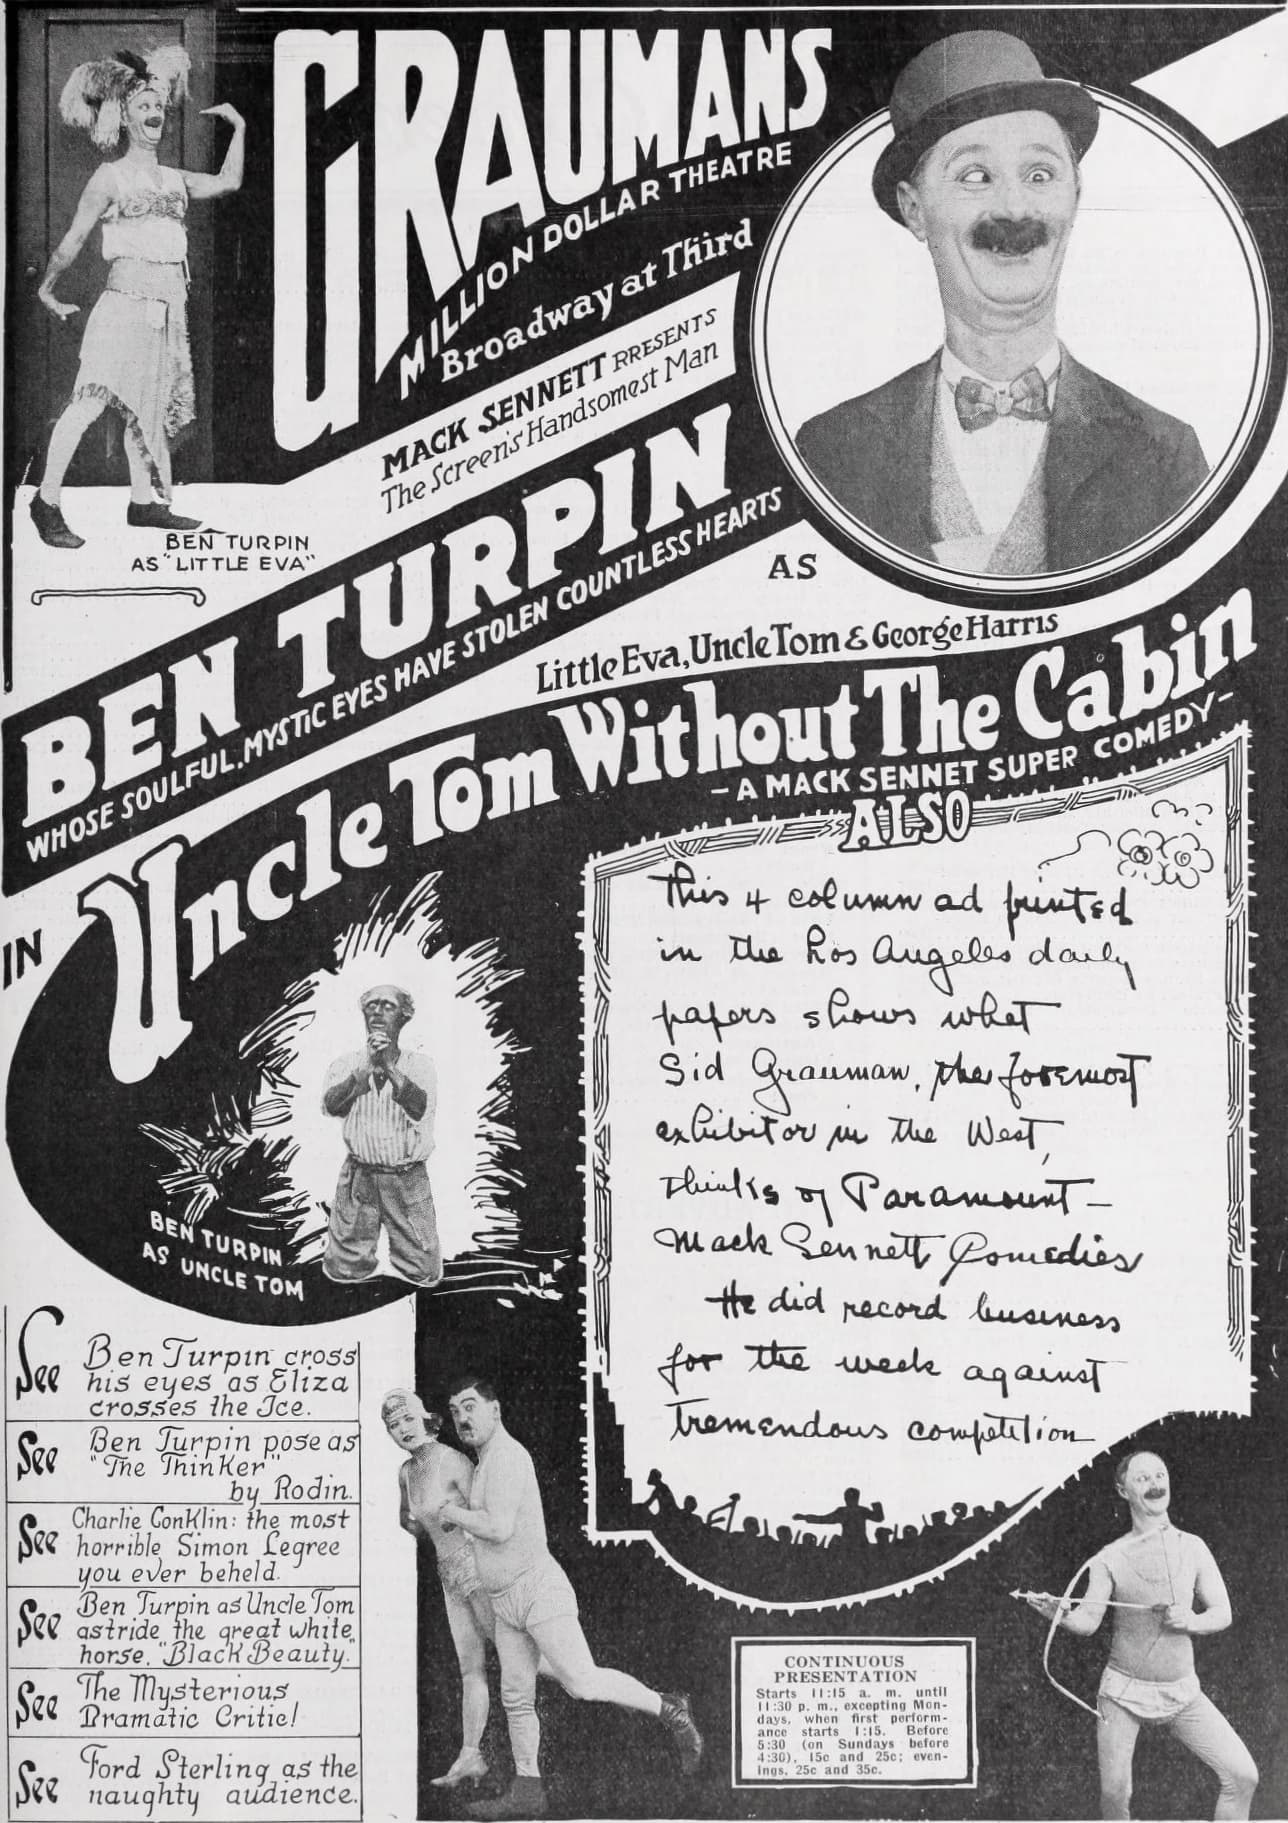 GRAUMANS
MILLION DOLLAR THEATRE
Broadway at Third
MACK SENNETT RRESENTS
The Screen's Handsomest Man
BEN TURPIN
WHOSE SOULFUL, MYSTIC EYES HAVE STOLEN COUNTLESS HEARTS
BEN TURPIN
AS "LITTLE EVA"
AS
Little Eva, Uncle Tom & George Harris
IN
Uncle Tom Without The Cabin
- A MACK SENNET SUPER COMEDY -
ALSO
This 4 column ad printed
in the Los Angeles daily
papers shows what
Sid Grauman, the foremost
exhibitor in the West,
thinks of Paramount -
Mack Sennett Comedies
He did record business
for the week against
tremendous competition
BEN TURPIN
AS UNCLE TOM
See Ben Turpin cross
his eyes as Eliza
crosses the Ice.
See Ben Turpin pose as
"The Thinker"
by Rodin.
See Charlie Conklin: the most
horrible Simon Legree
you ever beheld.
See Ben Turpin as Uncle Tom
astride the great white
horse, "Black Beauty."
See The Mysterious
Dramatic Critic!
See Ford Sterling as the
naughty audience.
CONTINUOUS
PRESENTATION
Starts 11:15 a. m. until
11:30 p. m., excepting Mon-
days, when first perform-
ance starts 1:15. Before
5:30 (on Sundays before
4:30), 15c and 25c; even-
ings, 25c and 35c.